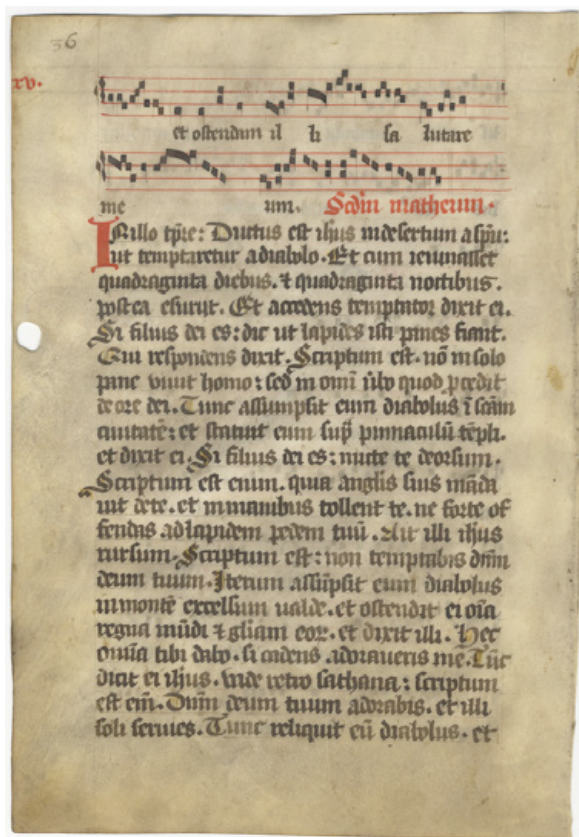 36
xv.
et ostendam il li sa lutare
me um. Scdm matheum.
In illo tpre: Ductus est ihus in desertum a spu:
ut temptaretur a diabolo. Et cum ieiunasset
quadraginta diebus. ⁊ quadraginta noctibus.
postea esuriit. Et accedens temptator dixit ei.
Si filius dei es: dic ut lapides isti panes fiant.
Qui respondens dixit. Scriptum est. nō in solo
pane viuit homo: sed in omni ūbo quod pcedit
de ore dei. Tunc assumpsit eum diabolus ī scām
ciuitatē: et statuit eum sup pinnaculū tēpli.
et dixit ei. Si filius dei es: mitte te deorsum.
Scriptum est enim. quia anglis suis māda
uit de te. et in manibus tollent te. ne forte of
fendas ad lapidem pedem tuū. Ait illi ihus
rursum. Scriptum est: non temptabis dnm
deum tuum. Iterum assūpsit eum diabolus
in montē excelsum ualde. et ostendit ei oīa
regna mūdi ⁊ gliam eor. et dixit illi. Hec
omnia tibi dabo. si cadens adoraueris me. Tūc
dicit ei ihus. vade retro sathana: scriptum
est eni. Dnm deum tuum adorabis. et illi
soli seruies. Tunc reliquit eū diabolus. et